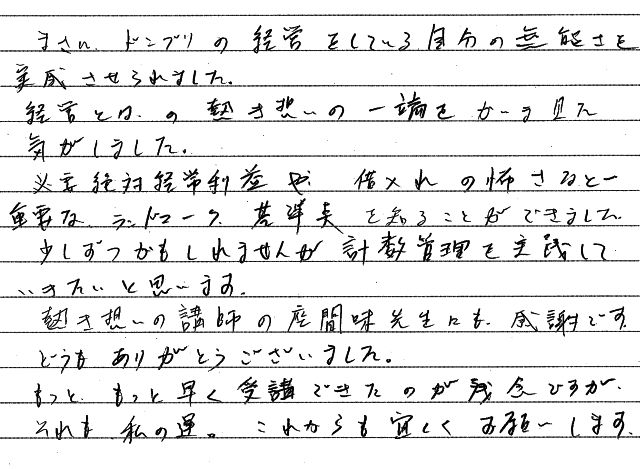 まさに、ドンブリの経営をしている自分の無能さを
実感させられました。
経営とは、の熱き想いの一端をかいま見た
気がしました。
必要絶対経常利益や、借入れの怖さなど
重要な、ランドマーク、基準点を知ることができました
少しずつかもしれませんが計数管理を実践して
いきたいと思います。
熱き想いの講師の座間味先生にも、感謝です。
どうもありがとうございました。
もっと、もっと早く受講できたのが残念ですが、
それも、私の運。これからも宜しくお願いします。